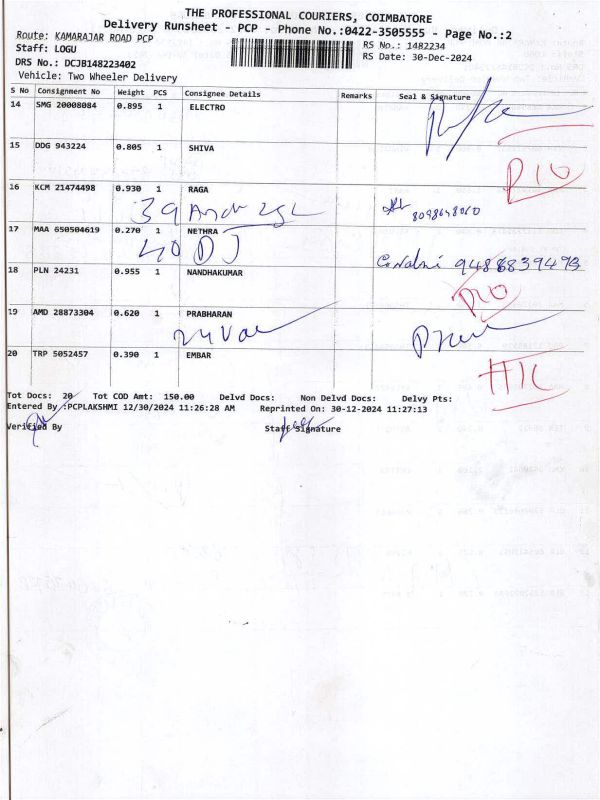 THE PROFESSIONAL COURIERS, COIMBATORE
Delivery Runsheet - PCP - Phone No.:0422-3505555 - Page No.:2
Route: KAMARAJAR ROAD PCP RS No.: 1482234
Staff: LOGU RS Date: 30-Dec-2024
DRS No.: DCJB148223402
Vehicle: Two Wheeler Delivery
S No Consignment No Weight PCS Consignee Details Remarks Seal & Signature
14 SMG 20008084 0.895 1 ELECTRO
15 DDG 943224 0.805 1 SHIVA
16 KCM 21474498 0.930 1 RAGA
39
8098648060
17 MAA 650504619 0.270 1 NETHRA
40 DJ
9486839493
18 PLN 24231 0.955 1 NANDHAKUMAR
19 AMD 28873304 0.620 1 PRABHARAN
20 TRP 5052457 0.390 1 EMBAR
Tot Docs: 20 Tot COD Amt: 150.00 Delvd Docs: Non Delvd Docs: Delvy Pts:
Entered By :PCPLAKSHMI 12/30/2024 11:26:28 AM Reprinted On: 30-12-2024 11:27:13
Verified By Staff Signature